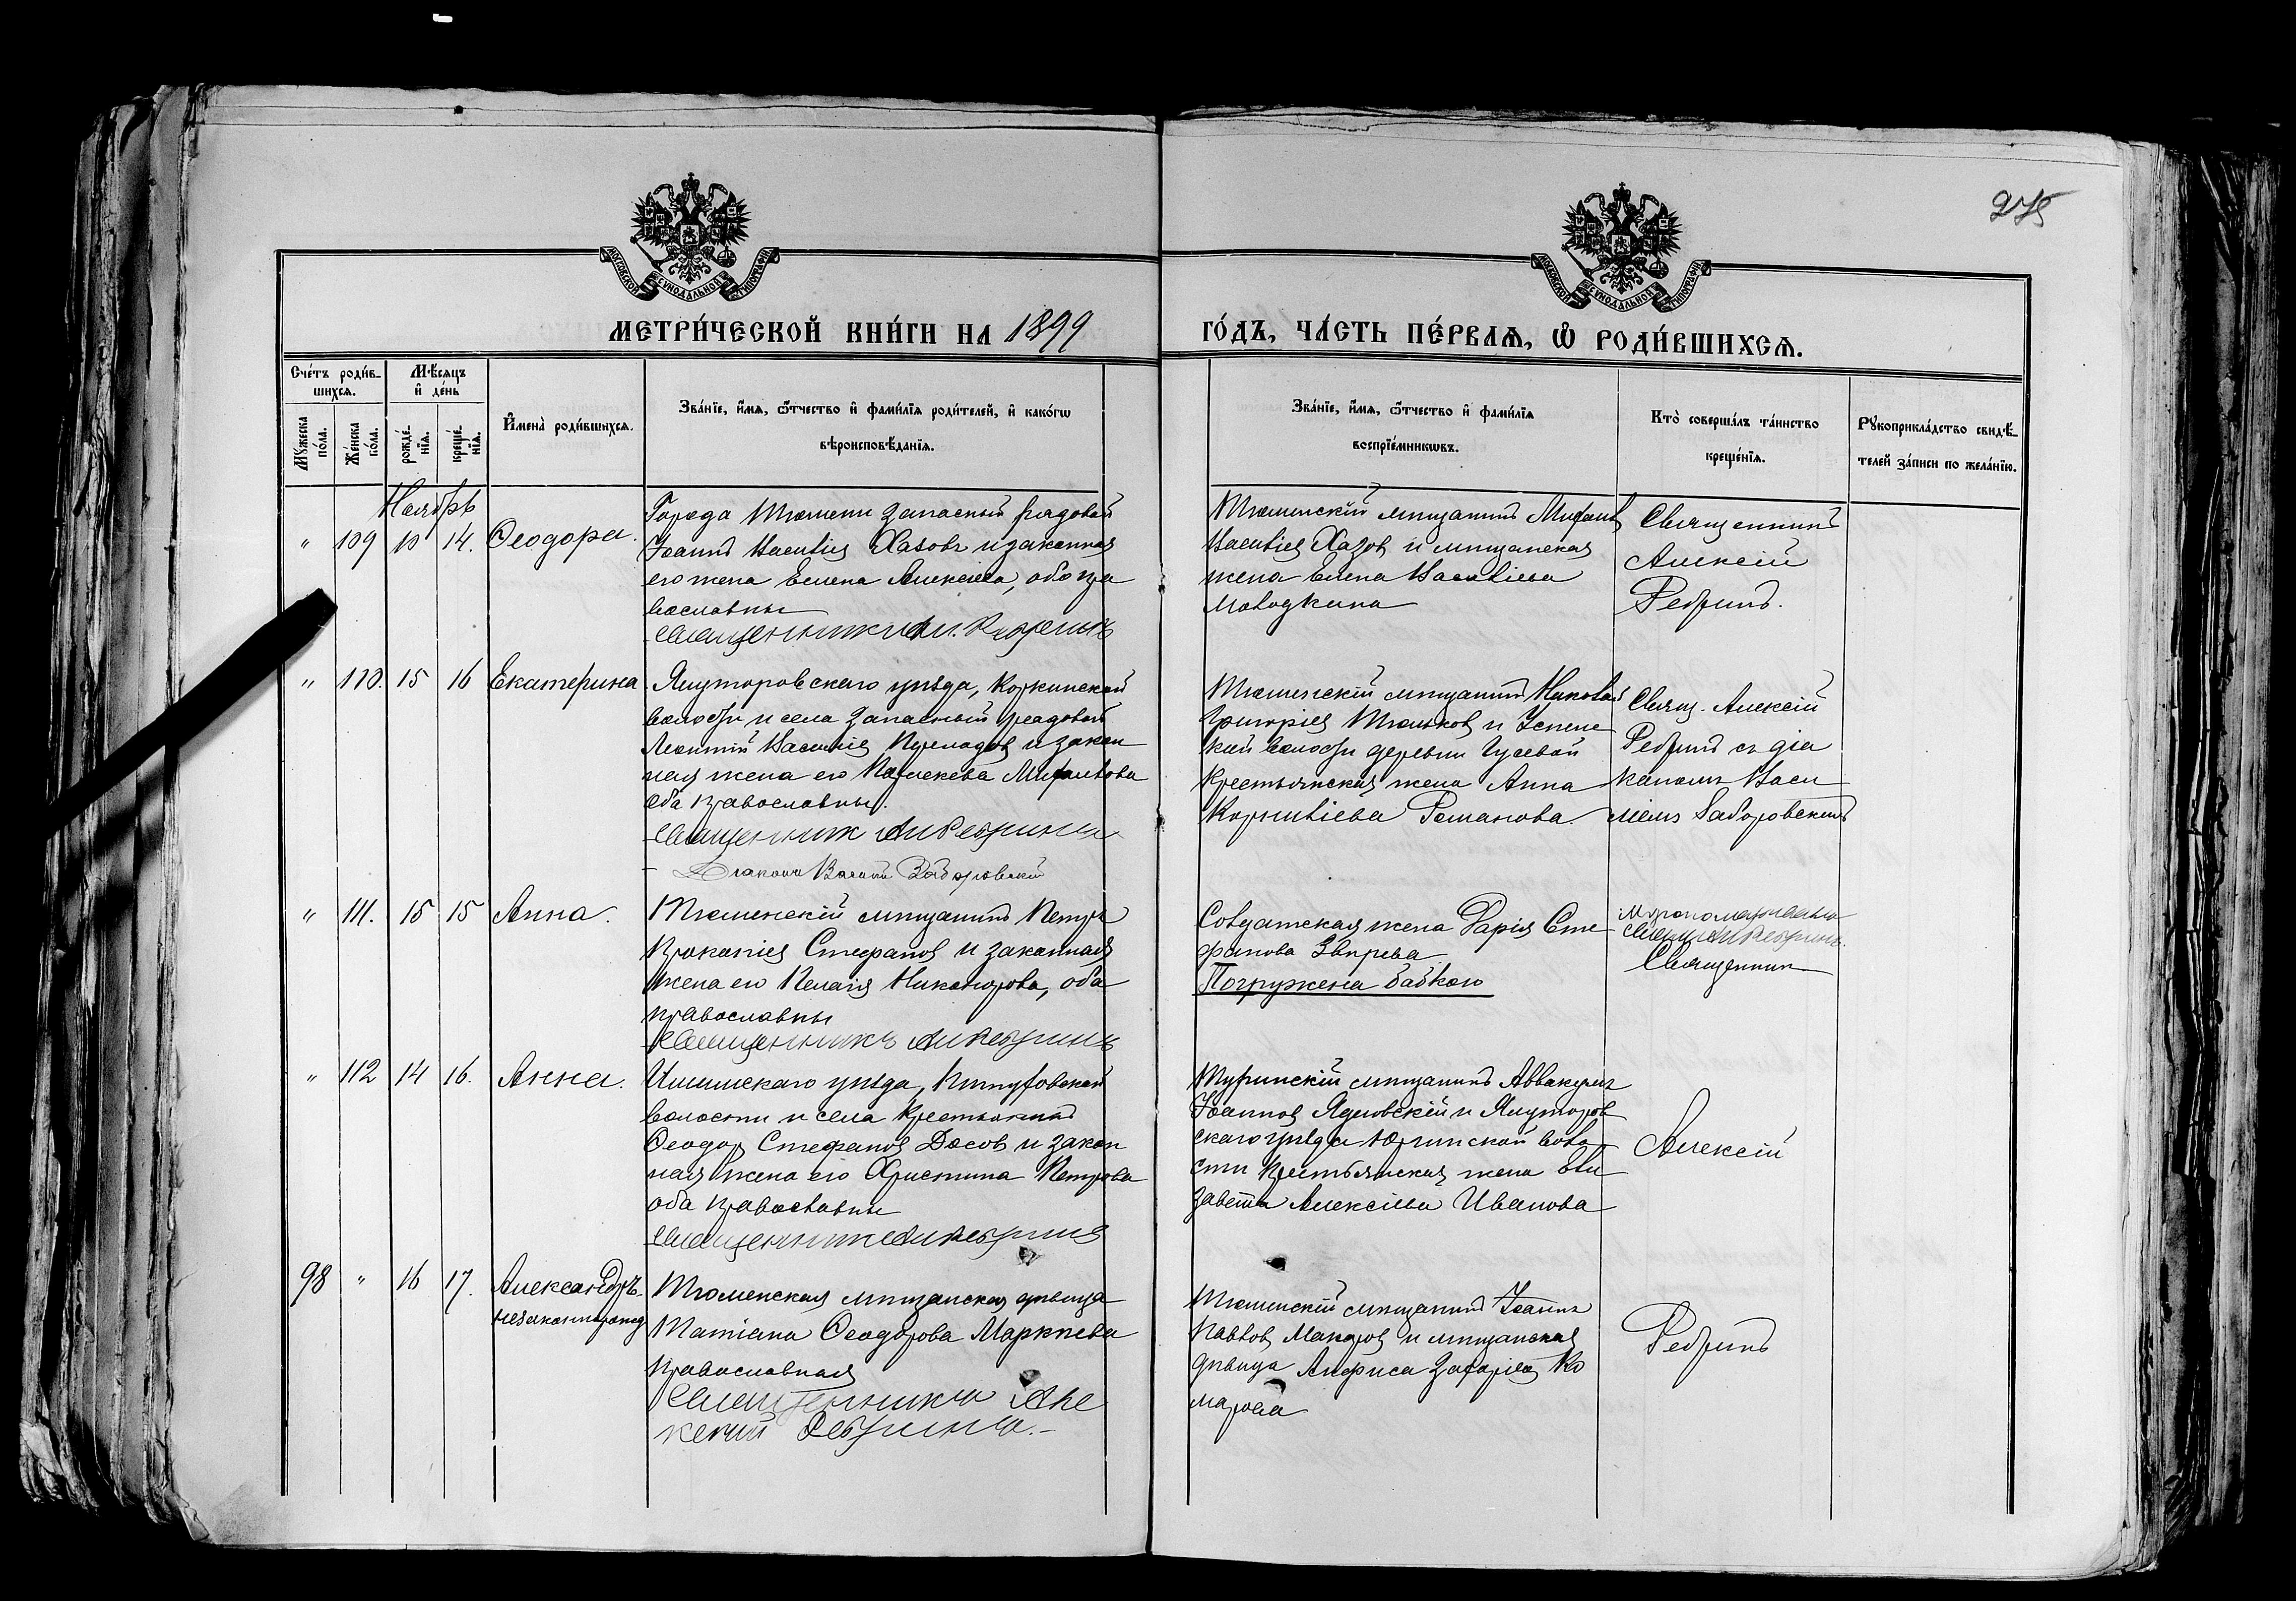 275
МЕТРИ́ЧЕСКОЙ КНИ́ГИ НА 1899
ГО́ДЪ, ЧА́СТЬ ПЕ́РВАѦ, Ѡ҆ РОДИ́ВШИХСѦ.
Сче́тъ роди́в-
шихсѧ.
Мѣ́сѧцъ
и҆ де́нь
Мꙋ́жеска
по́ла.
Же́нска
по́ла.
рожде́-
нїѧ.
креще́-
нїѧ.
И҆мена̀ роди́вшихсѧ.
Зва́нїе, и҆́мѧ, ѻ҆́тчество и҆ фами́лїѧ роди́телей, и҆ како́гѡ
вѣроисповѣ́данїѧ.
Зва́нїе, и҆́мѧ, ѻ҆́тчество и҆ фами́лїѧ
воспрїе́мникѡвъ.
Кто̀ соверша́лъ та́инство
креще́нїѧ.
Рꙋкоприкла́дство свидѣ́-
телей за́писи по жела́нїю.
Ноябрь
" 109 10 14. Ѳеодора.
Города Тюмени запасный рядовой
Іоаннъ Василіев Хазовъ и законная
его жена Елена Алексіева, оба пра
вославны
Священникъ Ал. Ребринъ
Тюменскій мѣщанинъ
Василіев Хазов и мѣщанская
жена Елена Василіева
Молодкина
Священникъ
Алексій
Ребринъ.
" 110. 15 16 Екатерина
Ялуторовскаго уѣзда, Коркинской
волости и села запасный рядовой
Леонтій Василіев и закон
ная жена его
оба православны.
Священник Ал Ребринъ
Діаконъ Василій Заборовскій
Тюменскій мѣщанинъ Николай
Григоріев Тюльков и Успенс
кой волости деревни Гусевой
Крестьянская жена Анна
Корниліева Романова.
Свящ. Алексій
Ребринъ съ діа
кономъ Васи
ліемъ Заборовскимъ
" 111. 15 15 Анна.
Тюменскій мѣщанинъ Петръ
Прокопіев Стефанов и законная
жена его Пелагія Никанорова, оба
православны
Священникъ Ал Ребринъ
Солдатская жена Дарія Сте
фанова Звѣрева
Погружена бабкою
Муропомазывалъ
свящ. Ал Ребринъ.
Священник
" 112 14 16. Анна.
Ишимскаго уѣзда,
волости и села крестьянинъ
Ѳеодор Стефанов Досов и закон
ная жена его Христина Петрова
оба православны
Священник Ал Ребринъ
Туринскій мѣщанинъ Аввакумъ
Іоаннов и Ялуторов
скаго уѣзда Юргинской воло
сти Крестьянская жена Ели
завета Алексіева Иванова
Алексій
98 " 16 17. Александръ
незаконнорожд
Тюменская мѣщанская дѣвица
Татіана Ѳеодорова
православная
Священникъ Але
ксий Ребринъ.-
Тюменскій мѣщанинъ Іоаннъ
Павлов Макаров и мѣщанская
дѣвица Анфиса Захарова Ко
марова
Ребринъ